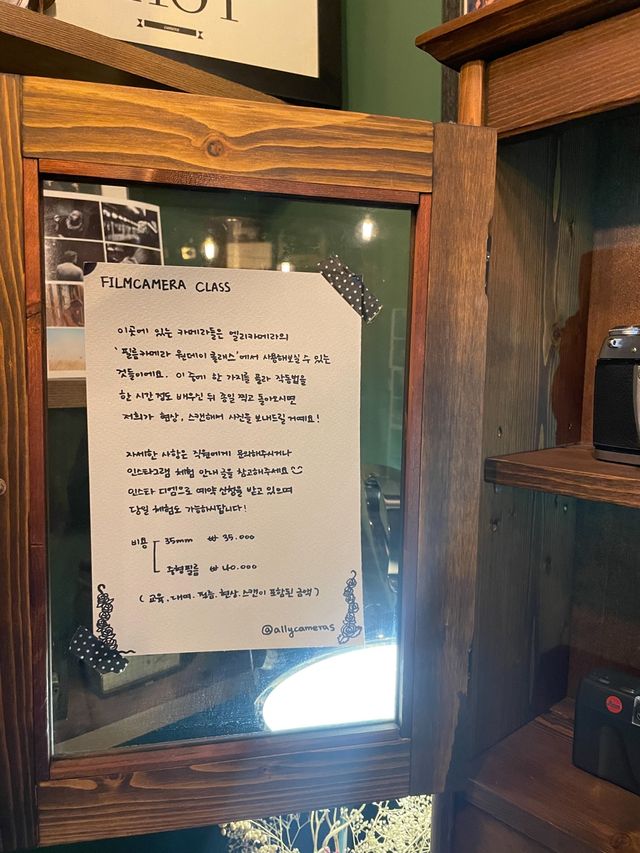 FILMCAMERA CLASS
이곳에 있는 카메라들은 엘리카메라의
'필름카메라 원데이 클래스'에서 사용해보실 수 있는
것들이에요. 이 중에 한 가지를 골라 작동법을
한 시간정도 배우신 뒤 종일 찍고 돌아오시면
저희가 현상, 스캔해서 사진을 보내드릴 거예요!
자세한 사항은 직원에게 문의해주시거나
인스타그램 체험 안내 글을 참고해주세요
인스타 디엠으로 예약 신청을 받고 있으며
당일 체험도 가능하시답니다!
비용 35mm ₩ 35.000
중형필름 ₩ 40.000
( 교육. 대여. 필름. 현상. 스캔이 포함된 금액 )
@allycameras